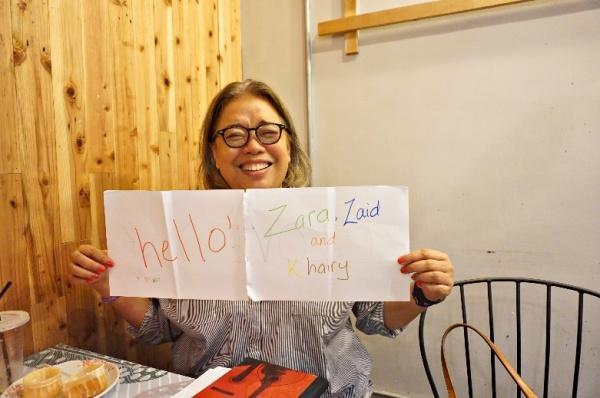 hello!
Zara, Zaid
and
Khairy